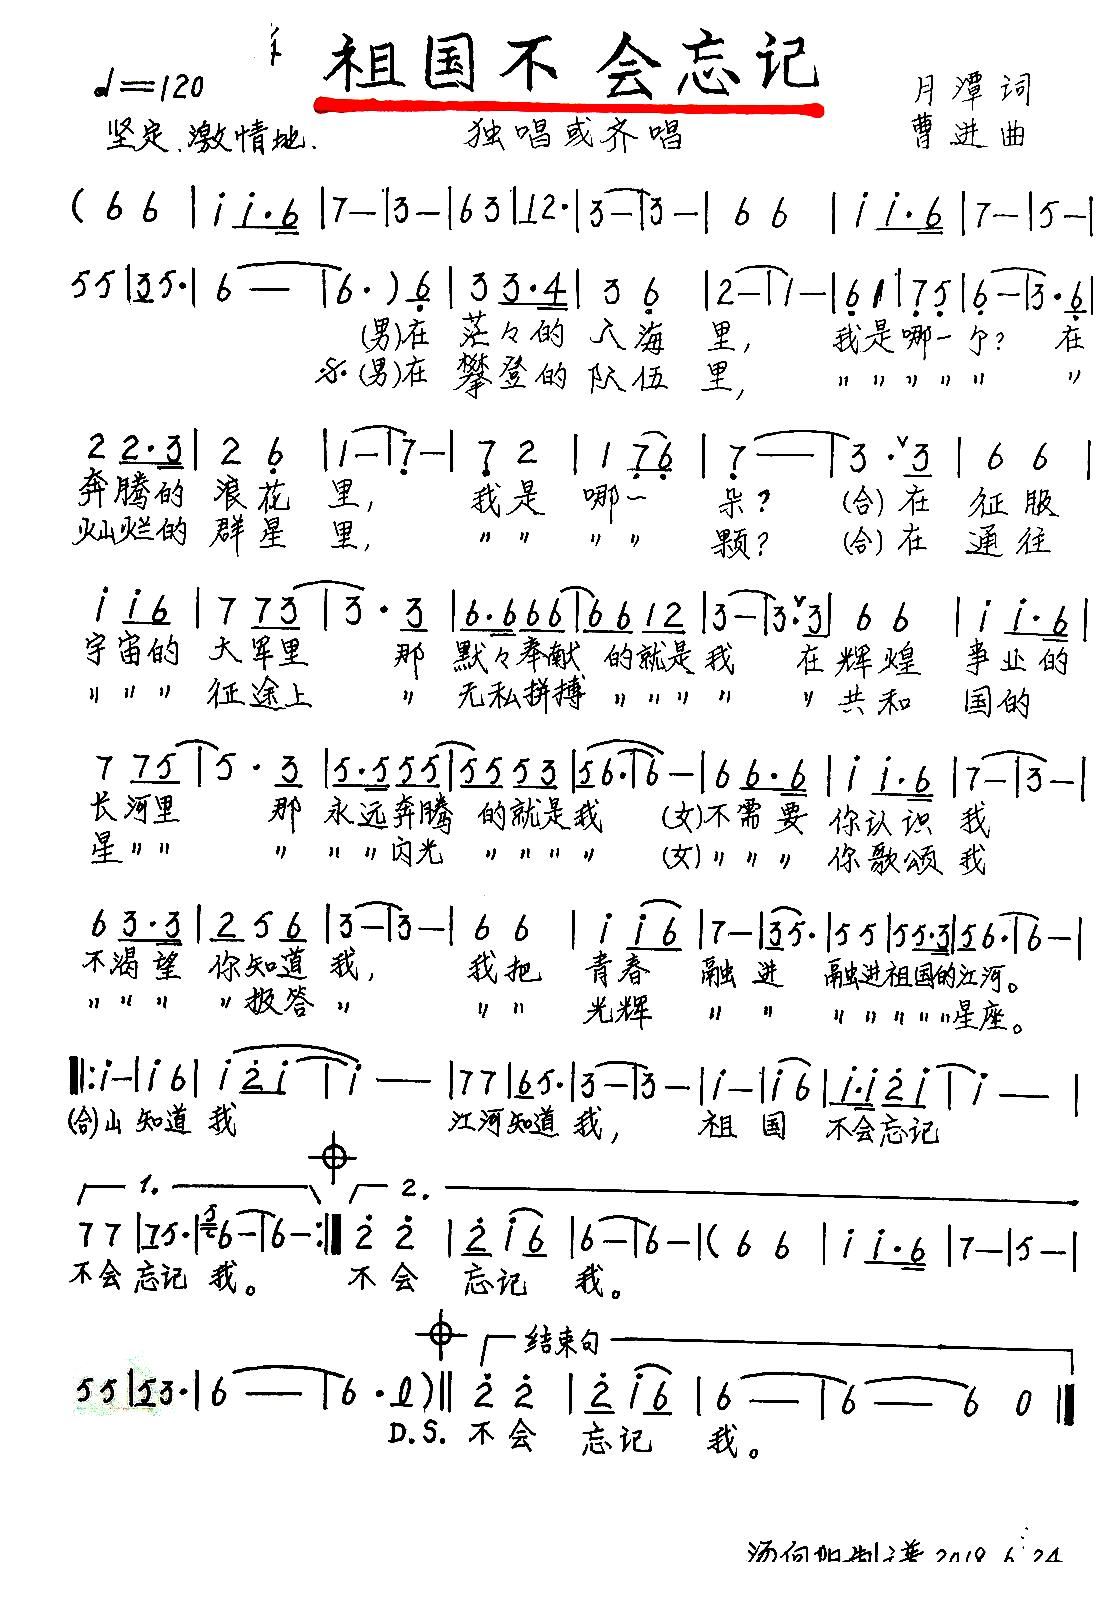 祖国不会忘记
♩=120
月潭词
坚定、激情地.
独唱或齐唱
曹进曲
( 6 6 | i i·6 | 7— | 3— | 6 3 | 12· | 3— | 3— | 6 6 | i i·6 | 7— | 5— |
5 5 | 3 5· | 6 — | 6· ) 6 | 3 3·4 | 3 6 | 2— | 1— | 6 1 | 7 5 | 6— | 3·6 |
(男)在 茫々的 人海 里， 我是哪一个？ 在
(男)在 攀登的 队伍 里， 〃 〃 〃 〃 〃 〃
2 2·3 | 2 6 | 1— | 7— | 7 2 | 1 7 6 | 7 — | 3·ˇ3 | 6 6 |
奔腾的 浪花 里， 我是 哪一 朵？ (合)在 征服
灿烂的 群星 里， 〃 〃 〃 〃 颗？ (合)在 通往
i i 6 | 7 7 3 | 3 · 3 | 6·6 6 6 | 6 6 1 2 | 3— | 3·ˇ3 | 6 6 | i i·6 |
宇宙的 大军里 那 默々奉献 的就是我 在辉煌 事业的
〃 〃 〃 征途上 〃 无私拼搏 〃 〃 〃 〃 〃 共和 国的
7 7 5 | 5 · 3 | 5·5 5 5 | 5 5 5 3 | 5 6· | 6— | 6 6·6 | i i·6 | 7— | 3— |
长河里 那 永远奔腾 的就是我 (女)不需要 你认识 我
星 〃 〃 〃 〃 〃 闪光 〃 〃 〃 〃 (女)〃 〃 〃 你歌颂 我
6 3·3 | 2 5 6 | 3— | 3— | 6 6 | i i 6 | 7— | 3 5· | 5 5 | 5 5·3 | 5 6· | 6— |
不渴望 你知道 我， 我把 青春 融进 融进祖国的江河。
〃 〃 〃 〃 报答 〃 〃 〃 光辉 〃 〃 〃 〃 〃 〃 〃 星座。
‖: i— | i 6 | i 2 i | i — | 7 7 | 6 5· | 3— | 3— | i— | i 6 | i·i 2 i | i — |
(合)山 知道 我 江河知道 我， 祖国 不会忘记
1. 2.
7 7 | 7 5· | 5 6— | 6— :‖ 2 2 | 2 i 6 | 6— | 6— | ( 6 6 | i i·6 | 7— | 5— |
不会 忘记 我。 不会 忘记 我。
结束句
5 5 | 5 3· | 6 — | 6 · 0 ) ‖ 2 2 | 2 i 6 | 6 — | 6 — 6 0 ‖
D.S. 不会 忘记 我。
2018.6.24